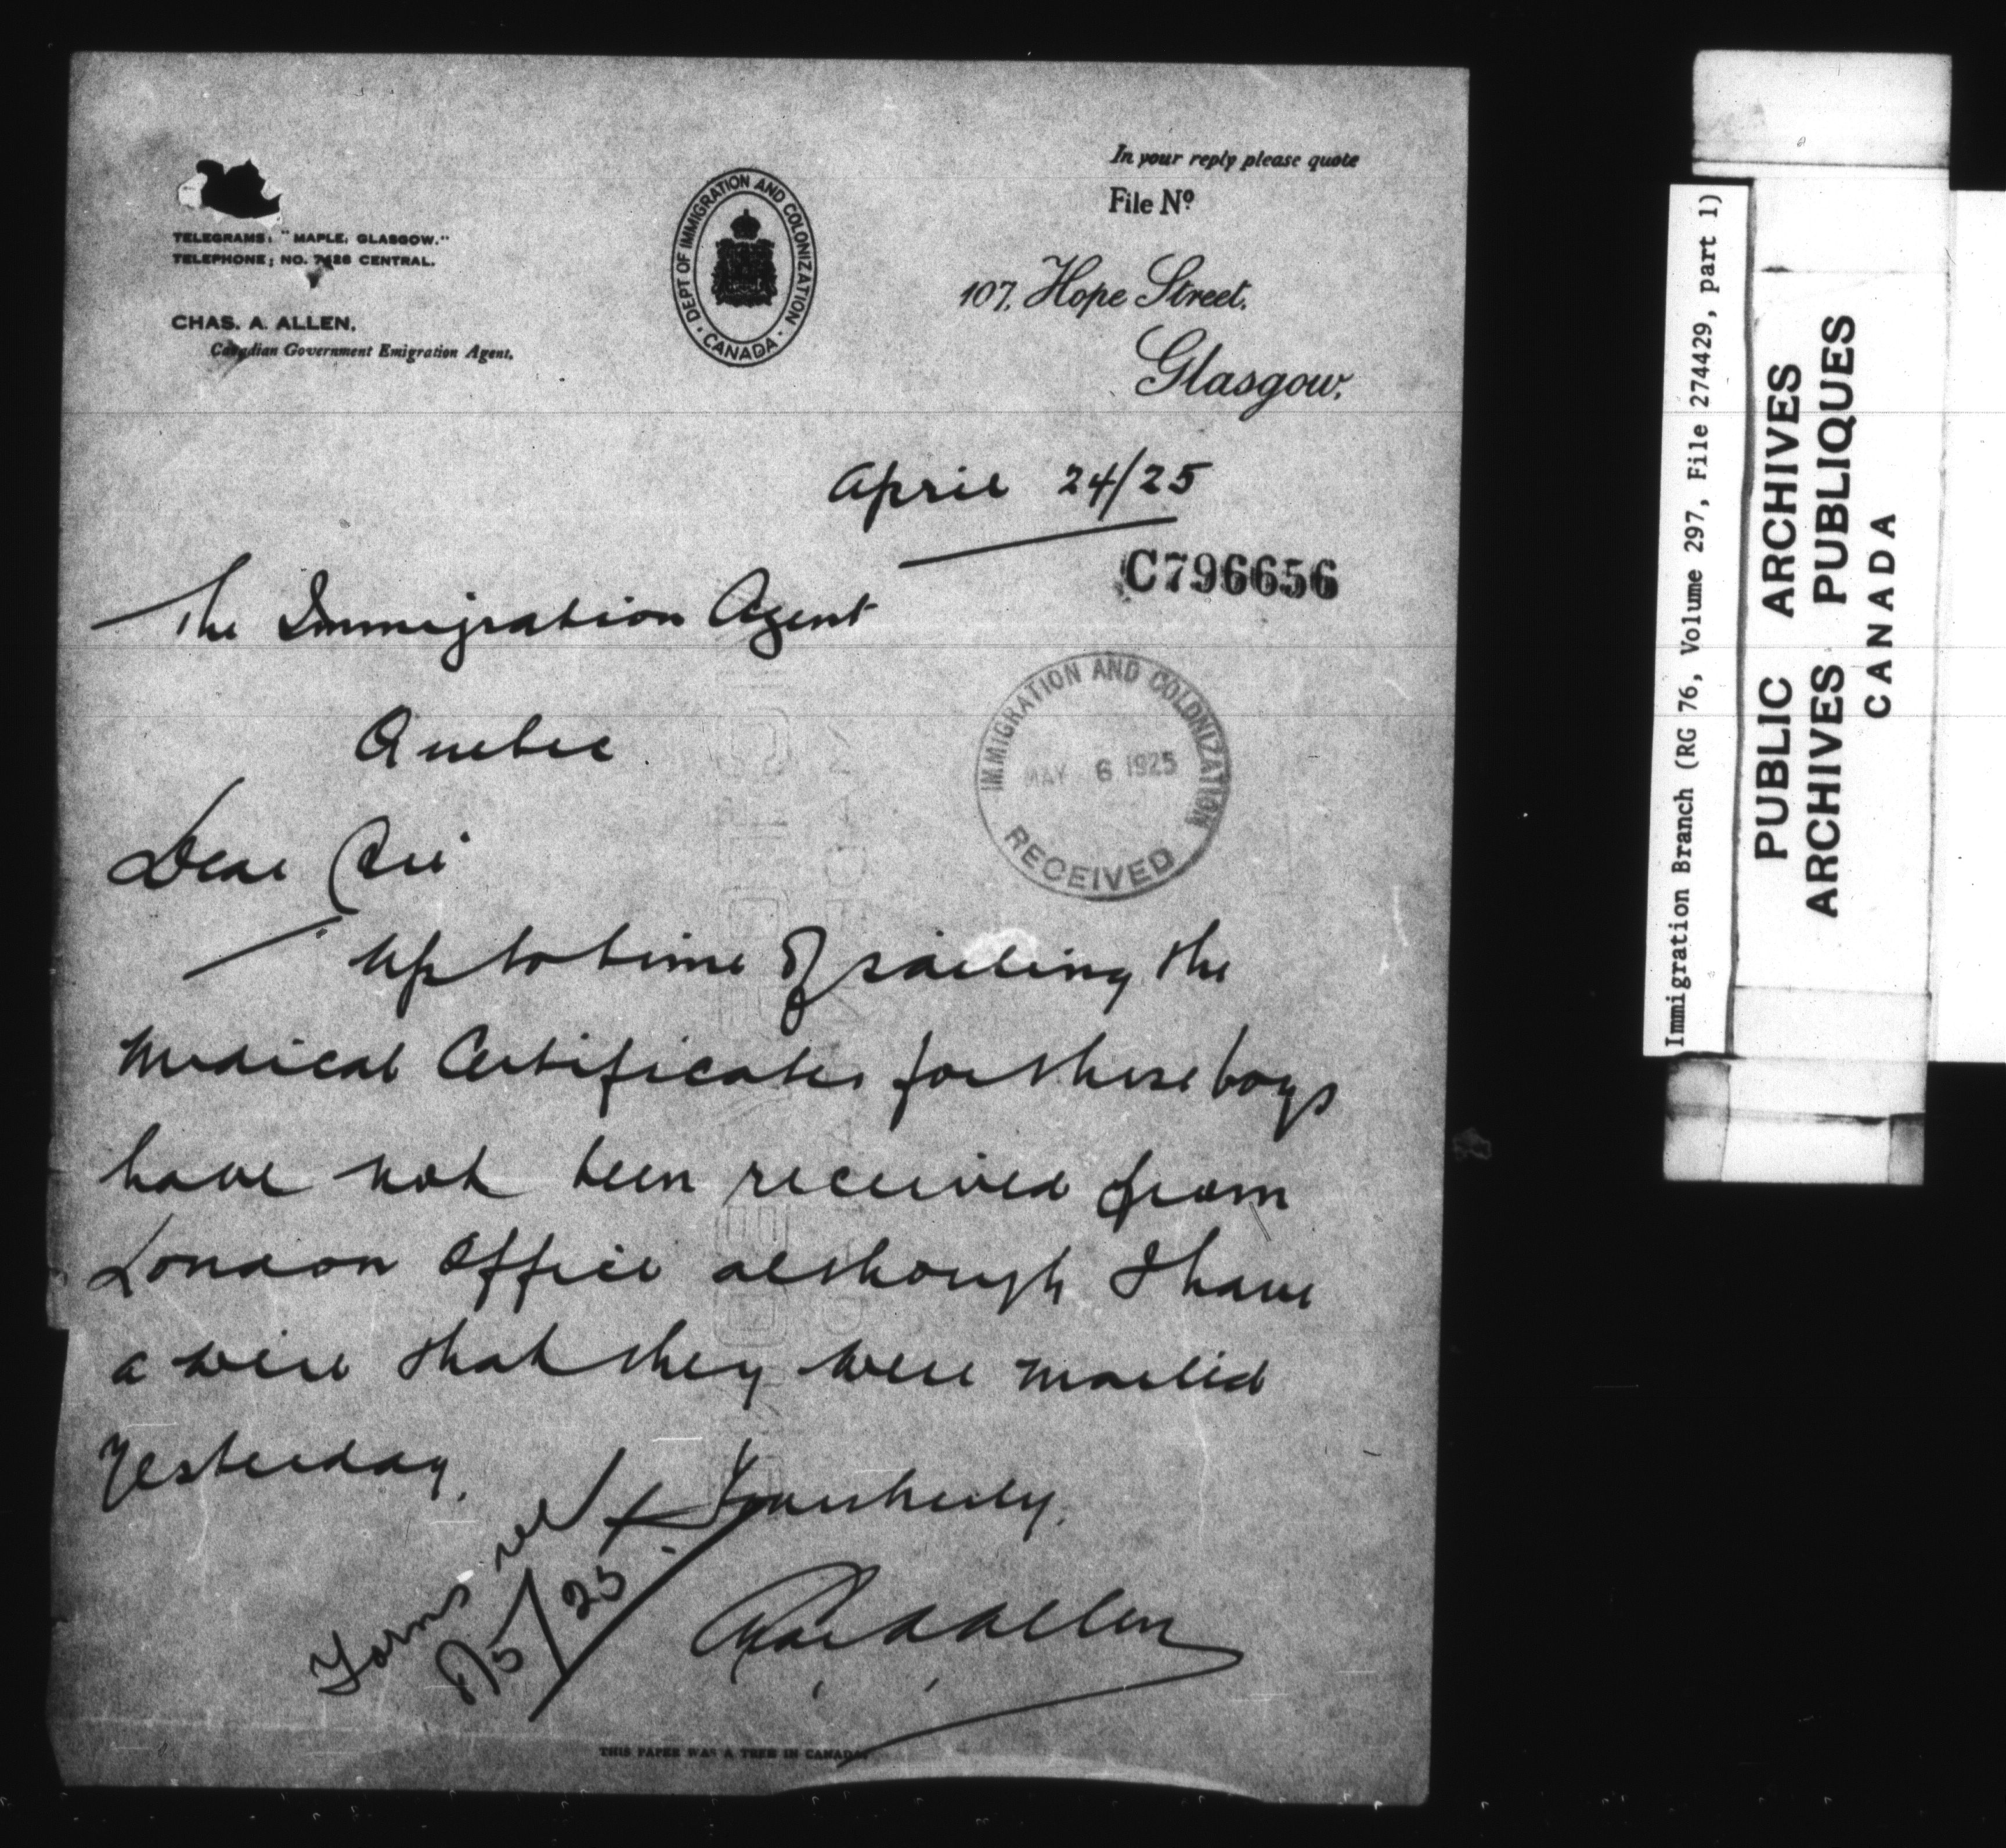 In your reply please quote
File Nº
TELEGRAMS: "MAPLE, GLASGOW."
TELEPHONE; NO. 7426 CENTRAL.
CHAS. A. ALLEN,
Canadian Government Emigration Agent.
DEPT OF IMMIGRATION AND COLONIZATION
CANADA
107, Hope Street,
Glasgow.
April 24/25
C796656
The Immigration Agent
Quebec
IMMIGRATION AND COLONIZATION
MAY 6 1925
RECEIVED
Dear Sir
Up to time of sailing the
Medical Certificates for these boys
have not been received from
London Office although I have
a wire that they were mailed
yesterday.
Yours truly.
Chas A Allen
Forms rec
5/25
THIS PAPER WAS A TREE IN CANADA.
Immigration Branch (RG 76, Volume 297, File 274429, part 1)
PUBLIC ARCHIVES
ARCHIVES PUBLIQUES
CANADA